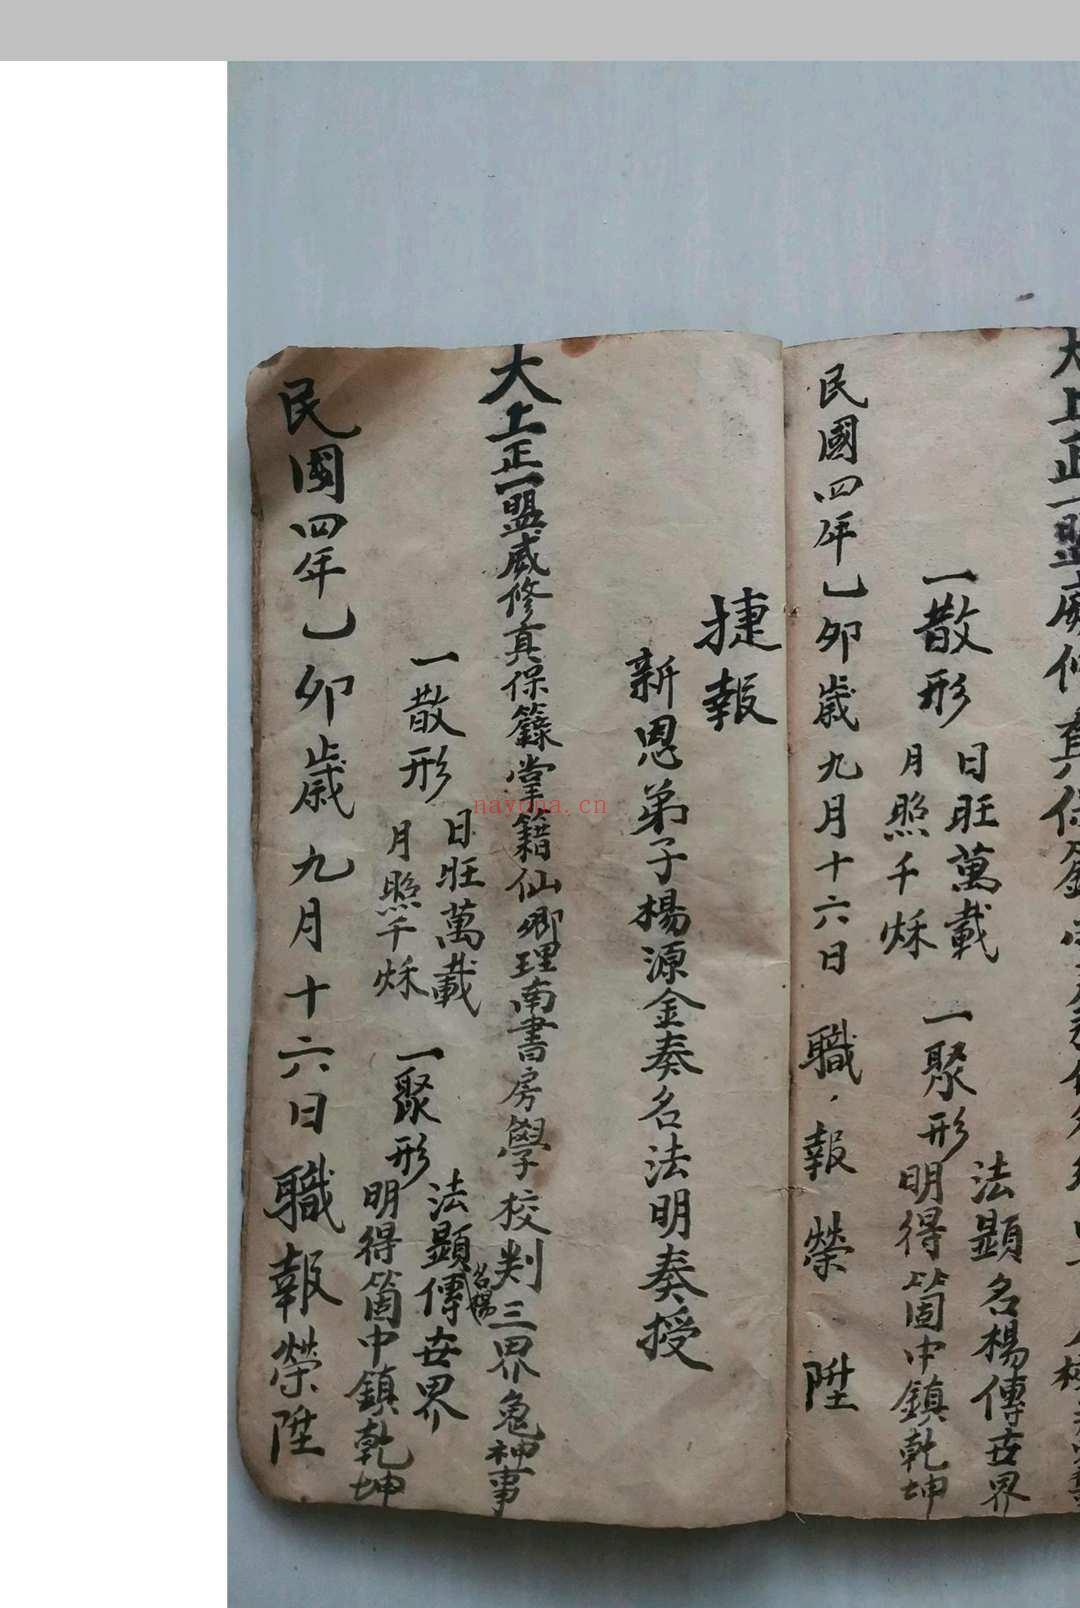 大上正一盟威修真保籙
一散形
日旺萬載
月照千秌
一聚形
法顯名楊傳世界
明得箇中鎮乾坤
民國四年乙卯歲九月十六日 職報榮陞
捷報
新恩弟子楊源金奏名法明奏授
大上正一盟威修真保籙掌籍仙卿理南書房學校判三界鬼神事
一散形
日旺萬載
月照千秌
一聚形
法顯名楊傳世界
明得箇中鎮乾坤
民國四年乙卯歲九月十六日職報榮陞
nayona.cn